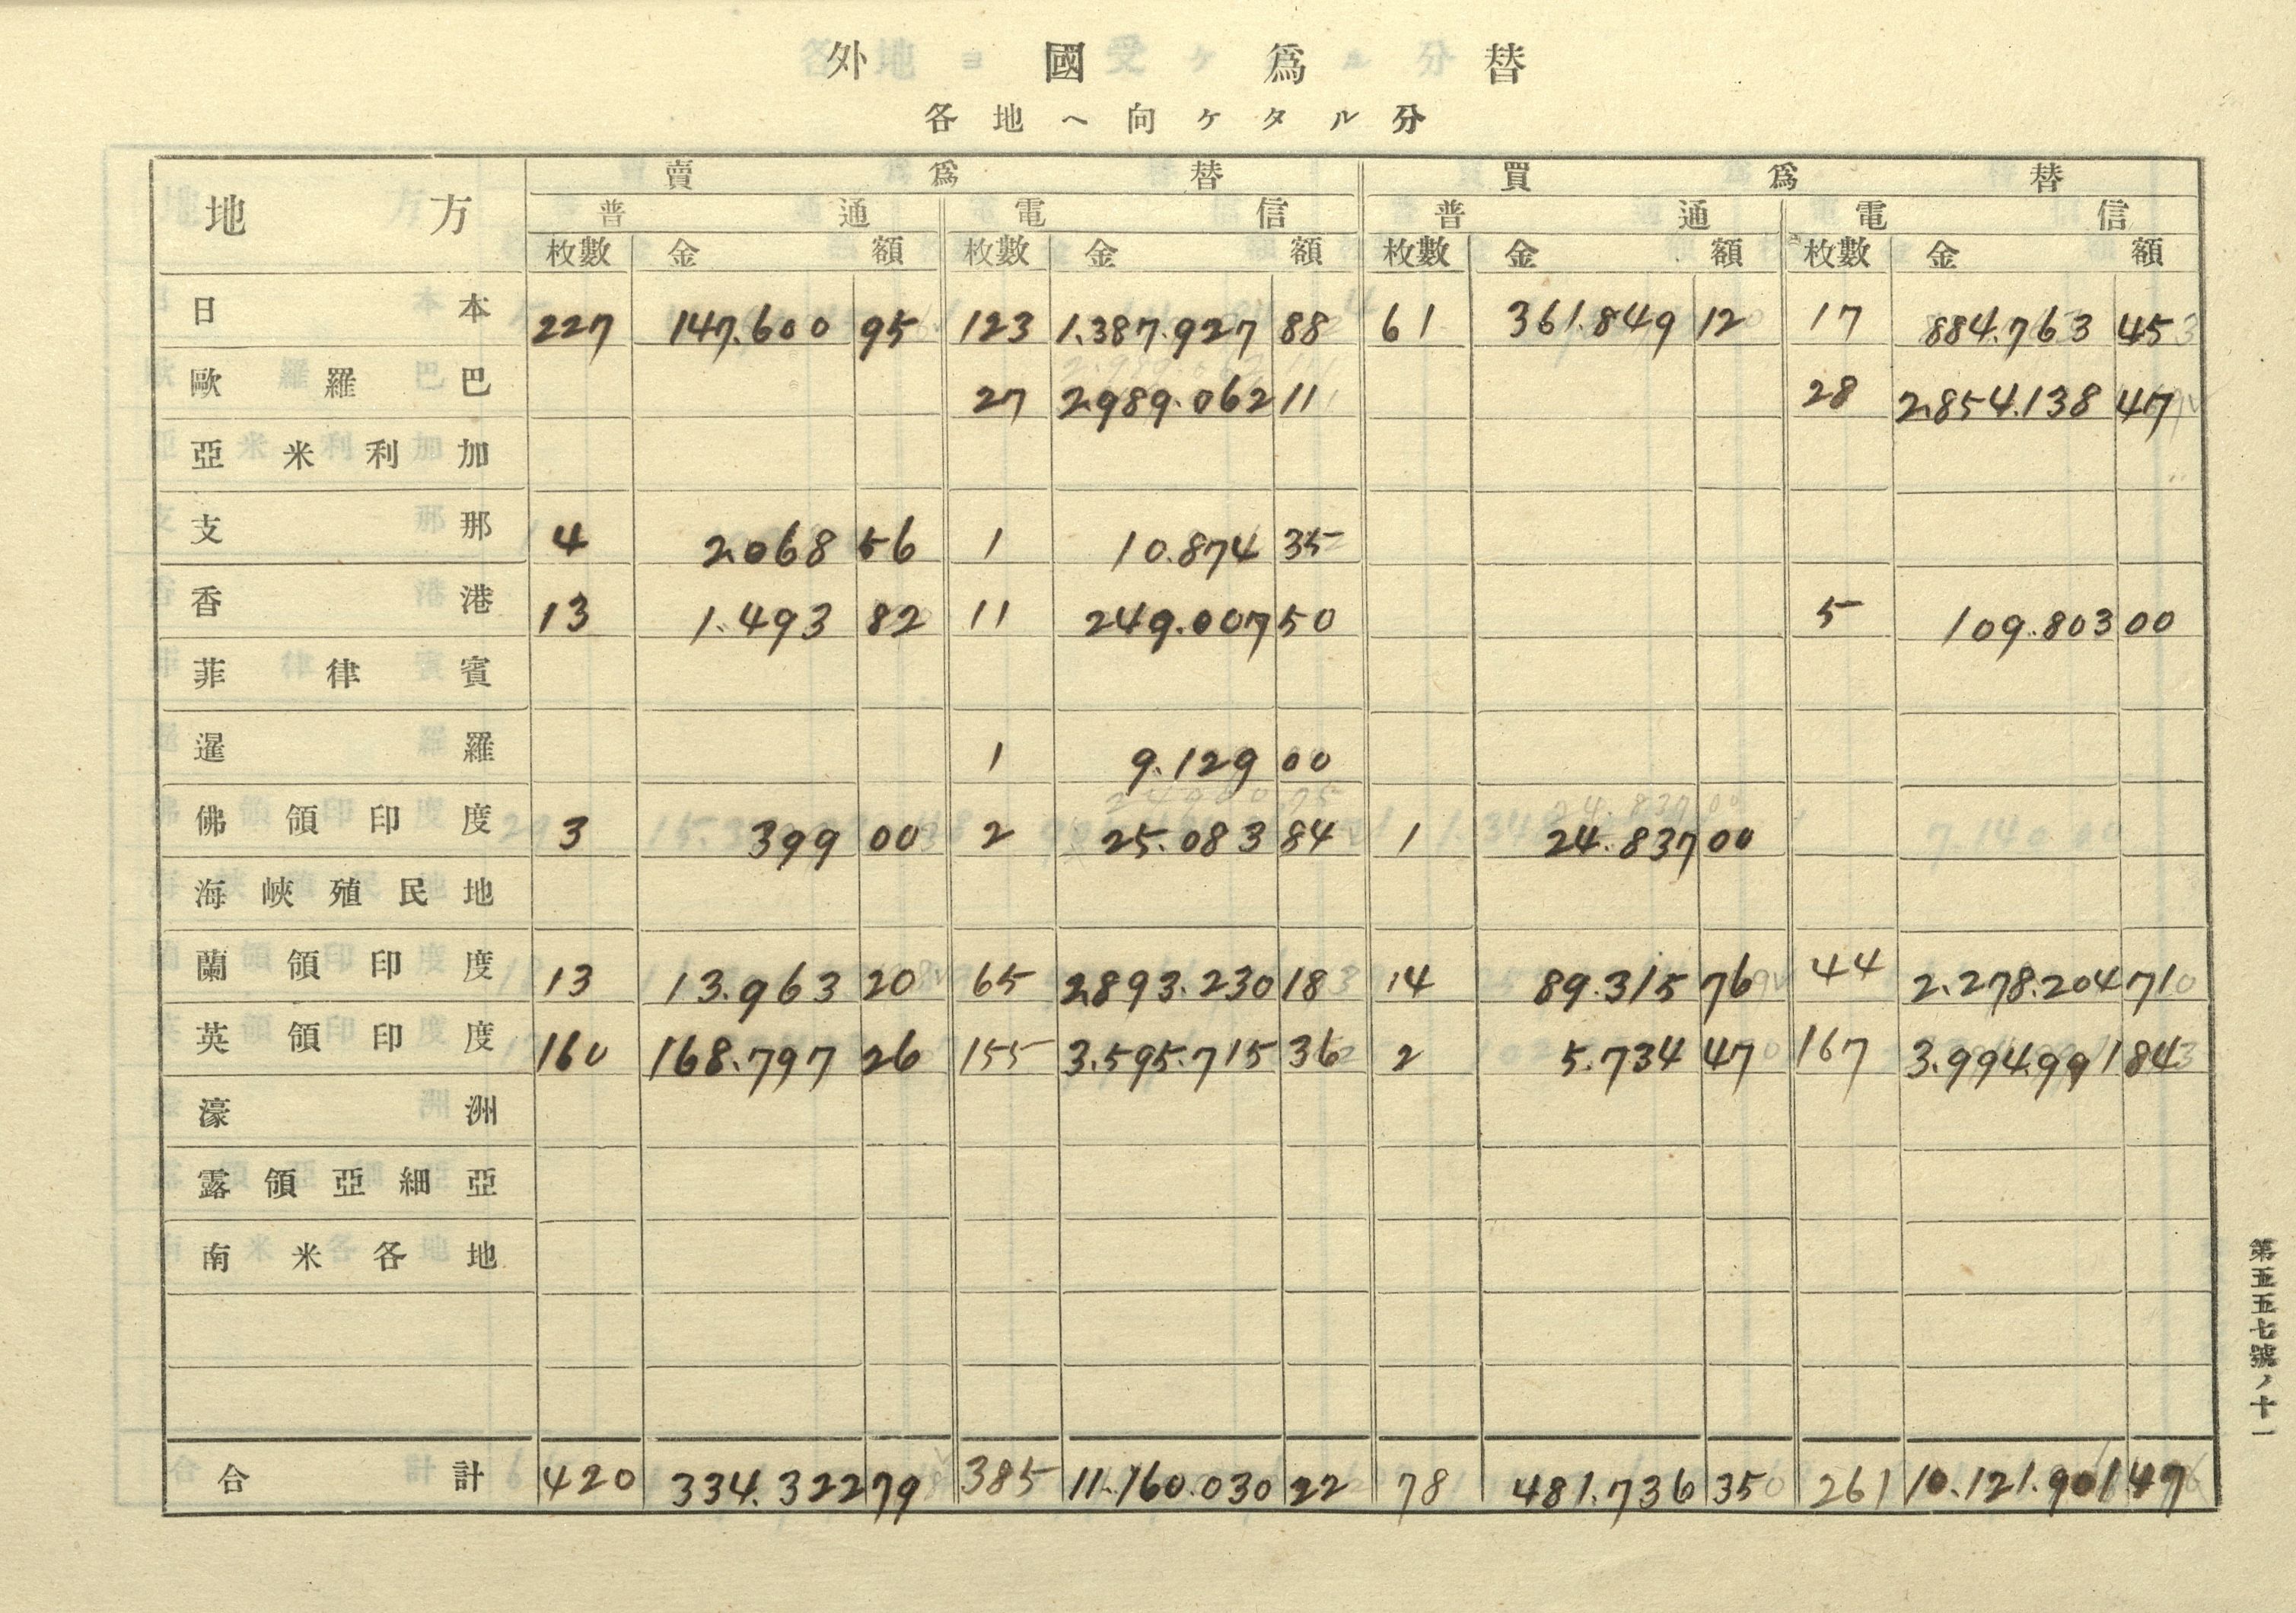 外國爲替
各地ヘ向ケタル分
地方 賣爲替 買爲替
普通 電信 普通 電信
枚數 金額 枚數 金額 枚數 金額 枚數 金額
日本 227 147.600 95 123 1.387.927 88 61 361.849 12 17 884.763 45
歐羅巴 27 2.989.062 11 28 2.854.138 47
亞米利加
支那 4 2.068 56 1 10.874 35
香港 13 1.493 82 11 249.007 50 5 109.803 00
菲律賓
暹羅 1 9.129 00
佛領印度 3 399 00 2 25.083 84 1 24.837 00
海峽殖民地
蘭領印度 13 13.963 20 65 2.893.230 18 14 89.315 76 44 2.278.204 71
英領印度 160 168.797 26 155 3.595.715 36 2 5.734 47 167 3.994.991 84
濠洲
露領亞細亞
南米各地
合計 420 334.322 79 385 11.160.030 22 78 481.736 35 261 10.121.901 47
第五五七號ノ十一